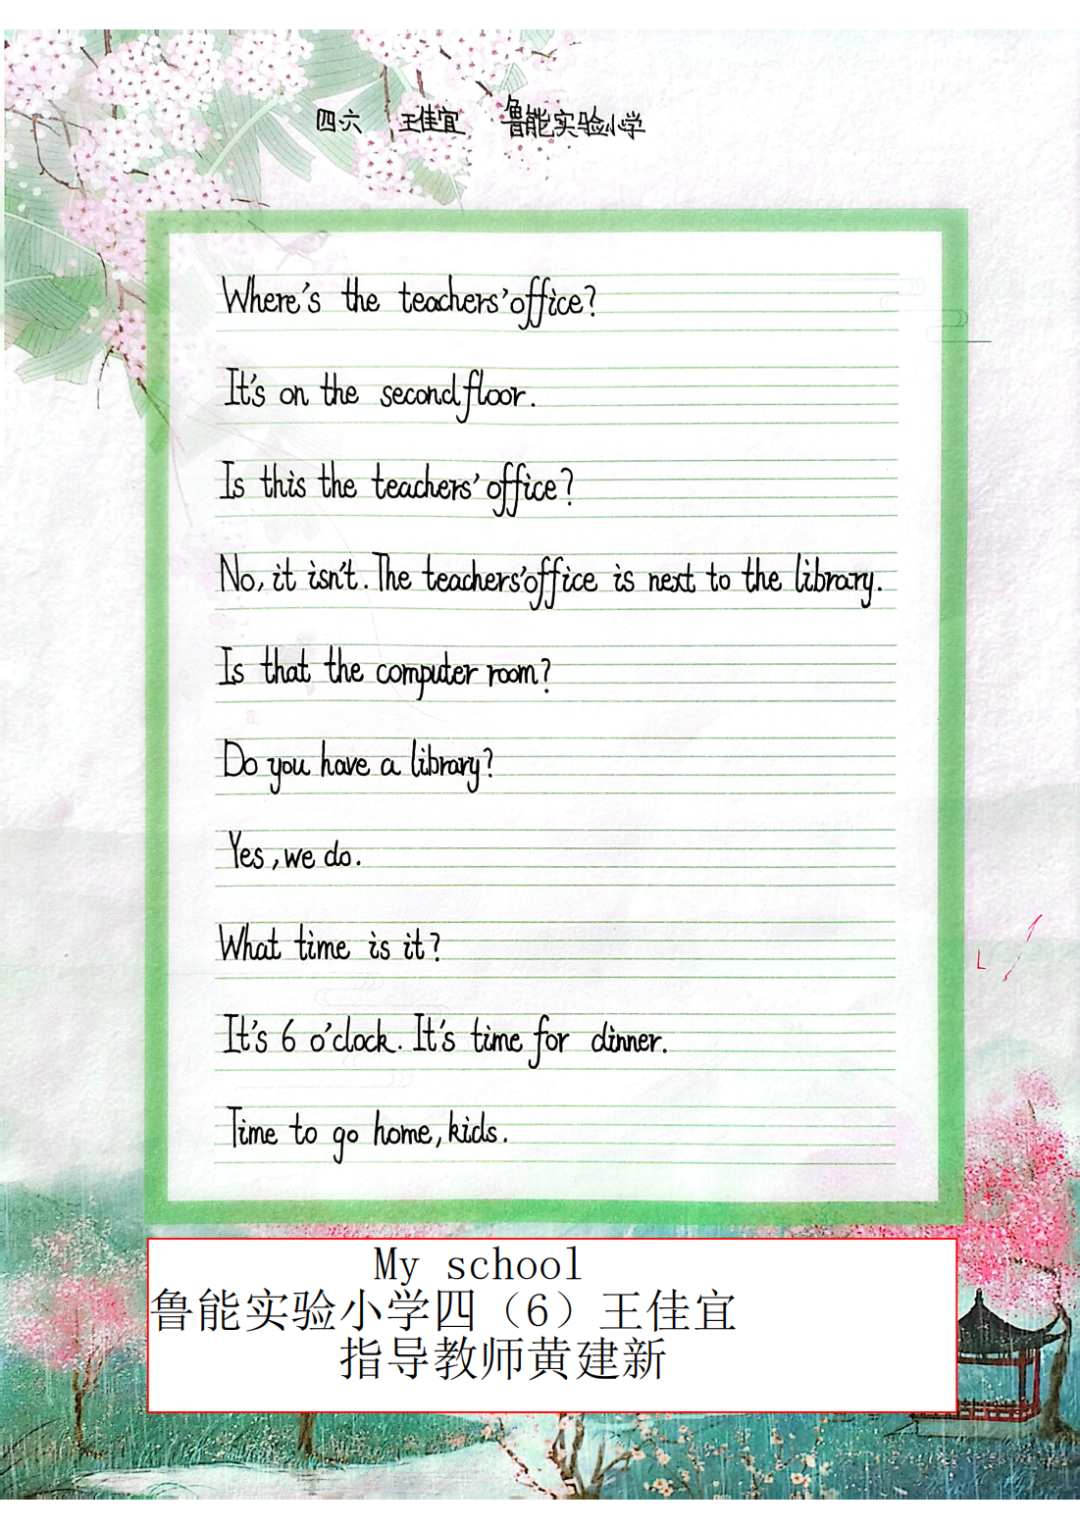 四六 王佳宜 鲁能实验小学
Where's the teachers' office?
It's on the second floor.
Is this the teachers' office?
No, it isn't. The teachers' office is next to the library.
Is that the computer room?
Do you have a library?
Yes, we do.
What time is it?
It's 6 o'clock. It's time for dinner.
Time to go home, kids.
My school
鲁能实验小学四（6）王佳宜
指导教师黄建新